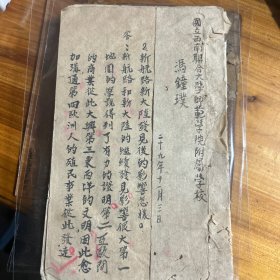 國立西南聯合大學師範學院附屬學校
馮鐘璞
二十九年十一月二日
新航路新大陸發見後的影響怎樣。
答：新航路和新大陸的繼續發見影響很大第一
地圓的學說得到了有力的證明第二立歐間
的商業從此大興第三東西洋的文明因此愈
加溝通第四歐洲人的殖民事業從此發達